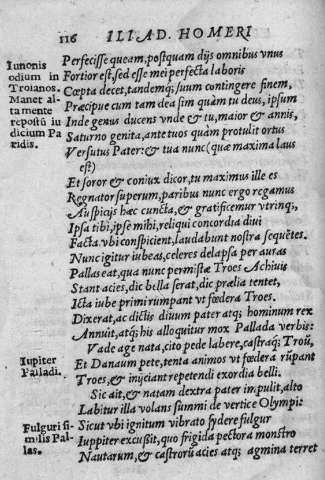 116 ILIAD. HOMERI
Iunonis
odium in
Troianos.
Manet al-
ta mente
repostũ iu
dicium Pa
ridis.
Perfecisse queam, postquam dijs omnibus vnus
Fortior est, sed esse mei perfecta laboris
Cœpta decet, tandemq; suum contingere finem,
Præcipue cum tam dea sim quàm tu deus, ipsum
Inde genus ducens vnde & tu, maior & annis,
Saturno genita, ante tuos quàm protulit ortus
Versutus Pater: & tua nunc (quæ maxima laus
est)
Et soror & coniux dicor, tu maximus ille es
Regnator superum, paribus nunc ergo regamus
Auspicijs hæc cuncta, & gratificemur vtrinq;,
Ipsa tibi, ipse mihi, reliqui concordia diui
Facta vbi conspicient, laudabunt nostra sequẽtes.
Nunc igitur iubeas, celeres delapsa per auras
Pallas eat, qua nunc permistæ Troes Achiuis
Stant acies, dic bella serat, dic prælia tentet,
Icta iube primi rumpant vt fœdera Troes.
Dixerat, ac dictis diuum pater atq; hominum rex
Annuit, atq; his alloquitur mox Pallada verbis:
Vade age nata, cito pede labere, castraq; Troũ,
Iupiter
Palladi.
Et Danaum pete, tenta animos vt fœdera rũpant
Troes, & inijciant repetendi exordia belli.
Sic ait, & natam dextra pater impulit, alto
Labitur illa volans summi de vertice Olympi:
Fulguri si-
milis Pal-
las.
Sicut vbi ignitum vibrato sydere fulgur
Iuppiter excussit, quo frigida pectora monstro
Nautarum, & castrorũ acies atq; agmina terret